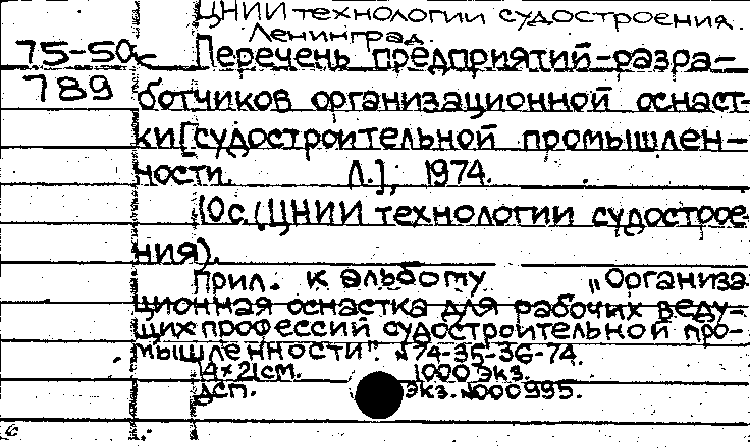 ЦНИИ технологии судостроения.
Ленинград.
75-50с Перечень предприятий-разра-
789 ботчиков организационной оснаст-
ки [судостроительной промышлен-
ности. Л.], 1974.
10с. (ЦНИИ технологии судострое-
ния).
Прил. к альбому „Организа
ционная оснастка для рабочих веду-
щих профессий судостроительной про-
мышленности". №74-35-36-74.
14×21см. 1000 экз.
ДСП. Экз. №000995.